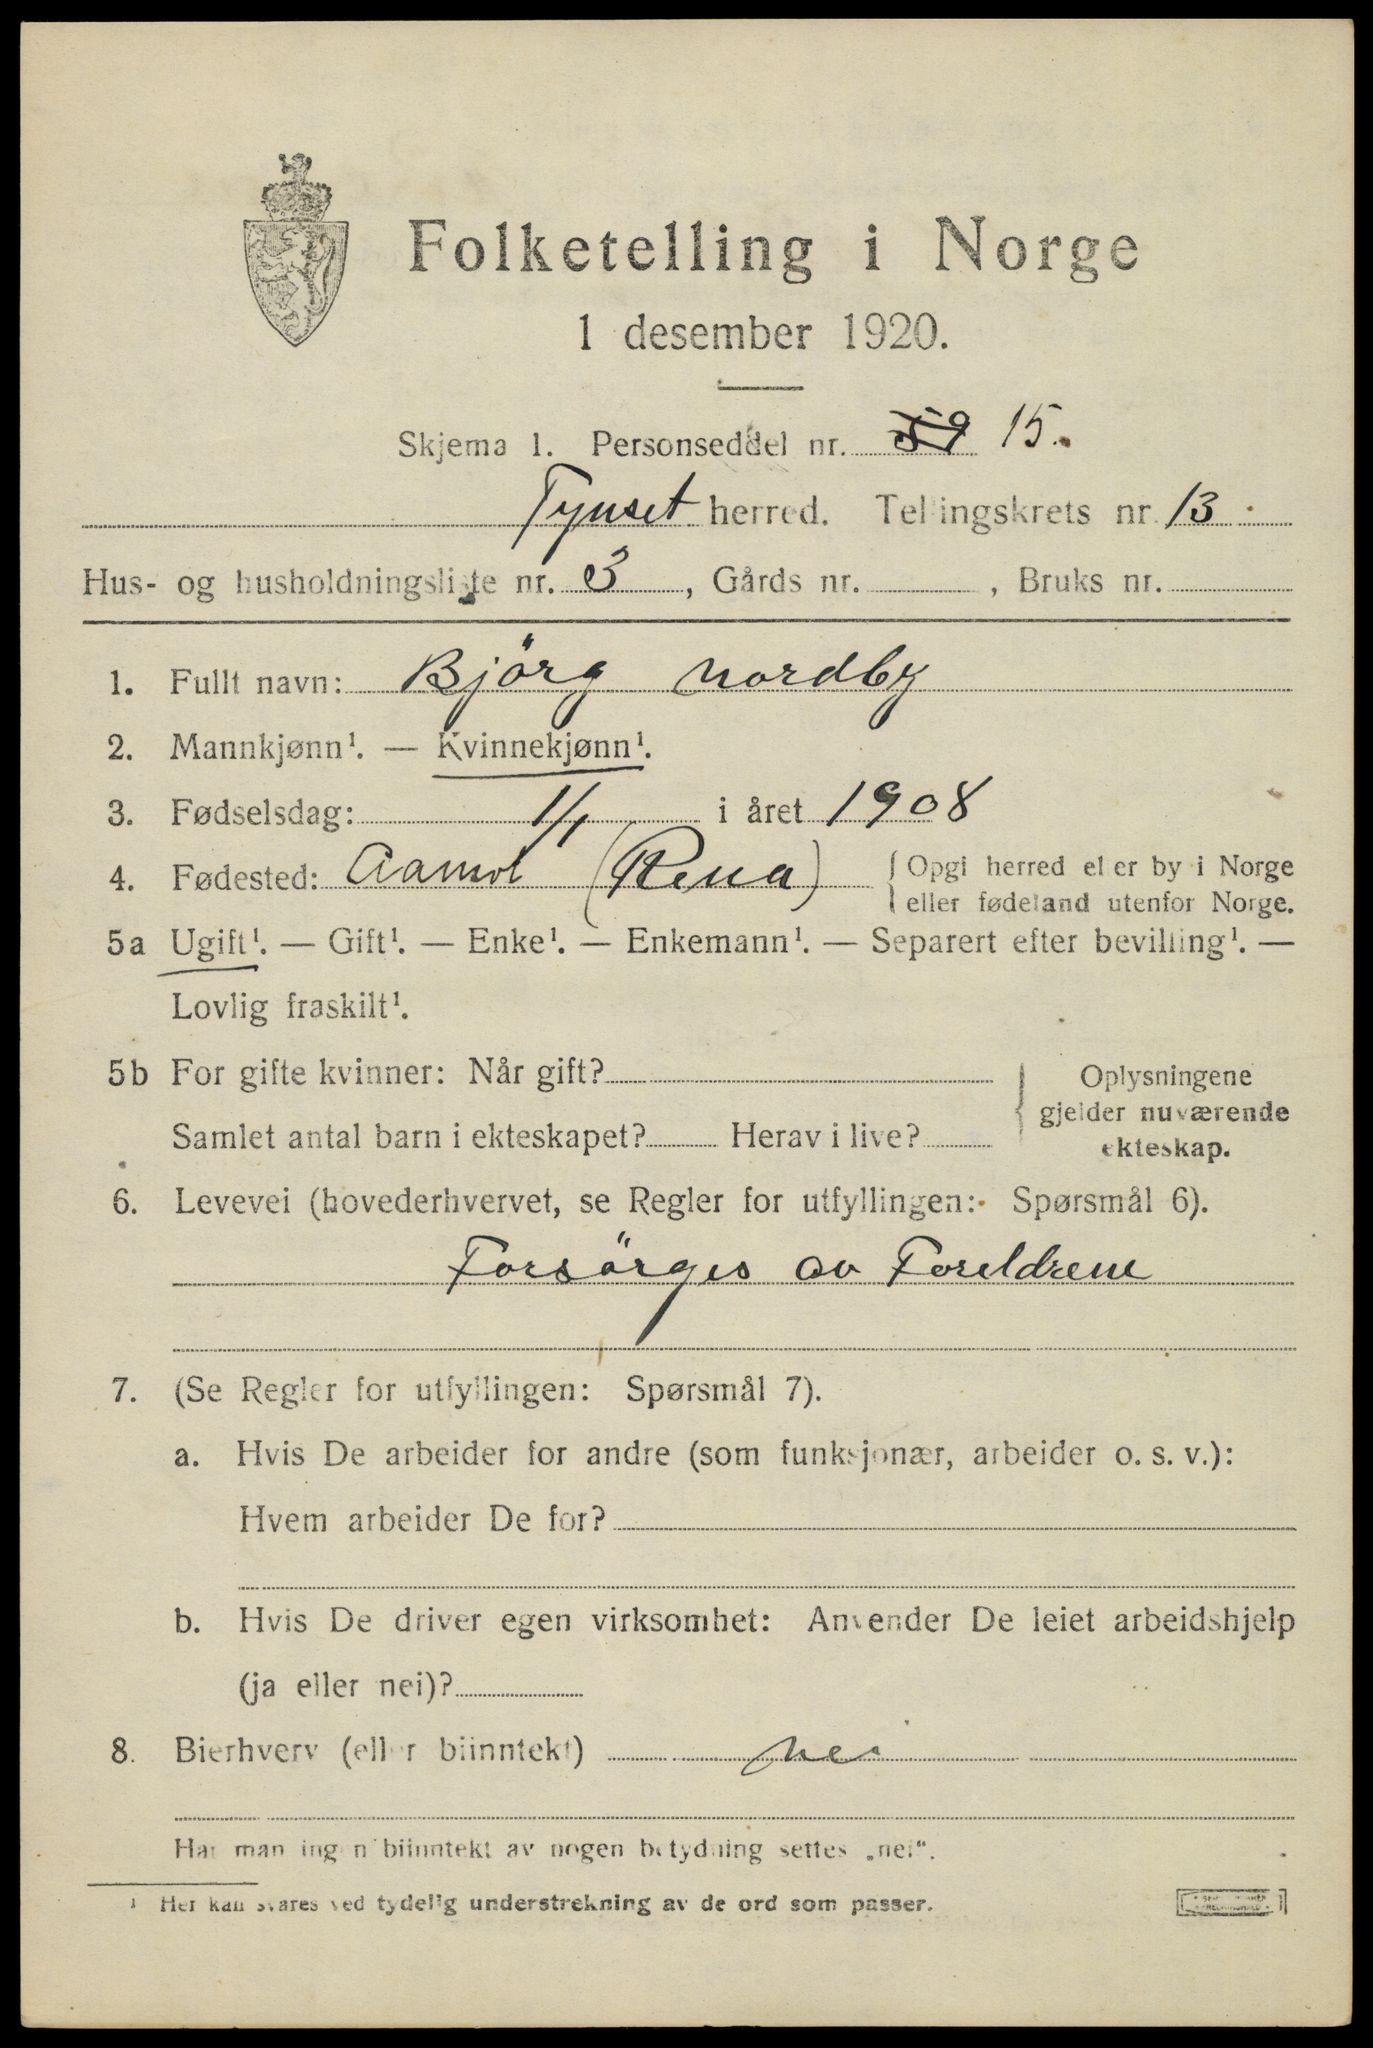 Folketelling i Norge
1 desember 1920.
Skjema 1. Personseddel nr. 59 15.
Tynset herred. Tellingskrets nr. 13
Hus- og husholdningsliste nr. 3, Gårds nr. , Bruks nr.
1. Fullt navn: Björg Nordby
2. Mannkjønn¹. — Kvinnekjønn¹.
3. Fødselsdag: 1/1 i året 1908
4. Fødested: Aamot (Rena) {Opgi herred eller by i Norge
eller fødeland utenfor Norge.
5a Ugift¹. — Gift¹. — Enke¹. — Enkemann¹. — Separert efter bevilling¹. —
Lovlig fraskilt¹.
5b For gifte kvinner: Når gift? { Oplysningene
gjelder nuværende
Samlet antal barn i ekteskapet? Herav i live?
ekteskap.
6. Levevei (hovederhvervet, se Regler for utfyllingen: Spørsmål 6).
Forsörges av Foreldrene
7. (Se Regler for utfyllingen: Spørsmål 7).
a. Hvis De arbeider for andre (som funksjonær, arbeider o. s. v.):
Hvem arbeider De for?
b. Hvis De driver egen virksomhet: Anvender De leiet arbeidshjelp
(ja eller nei)?
8. Bierhverv (eller biinntekt) nei
Har man ingen biinntekt av nogen betydning settes „nei“.
¹ Her kan svares ved tydelig understrekning av de ord som passer.